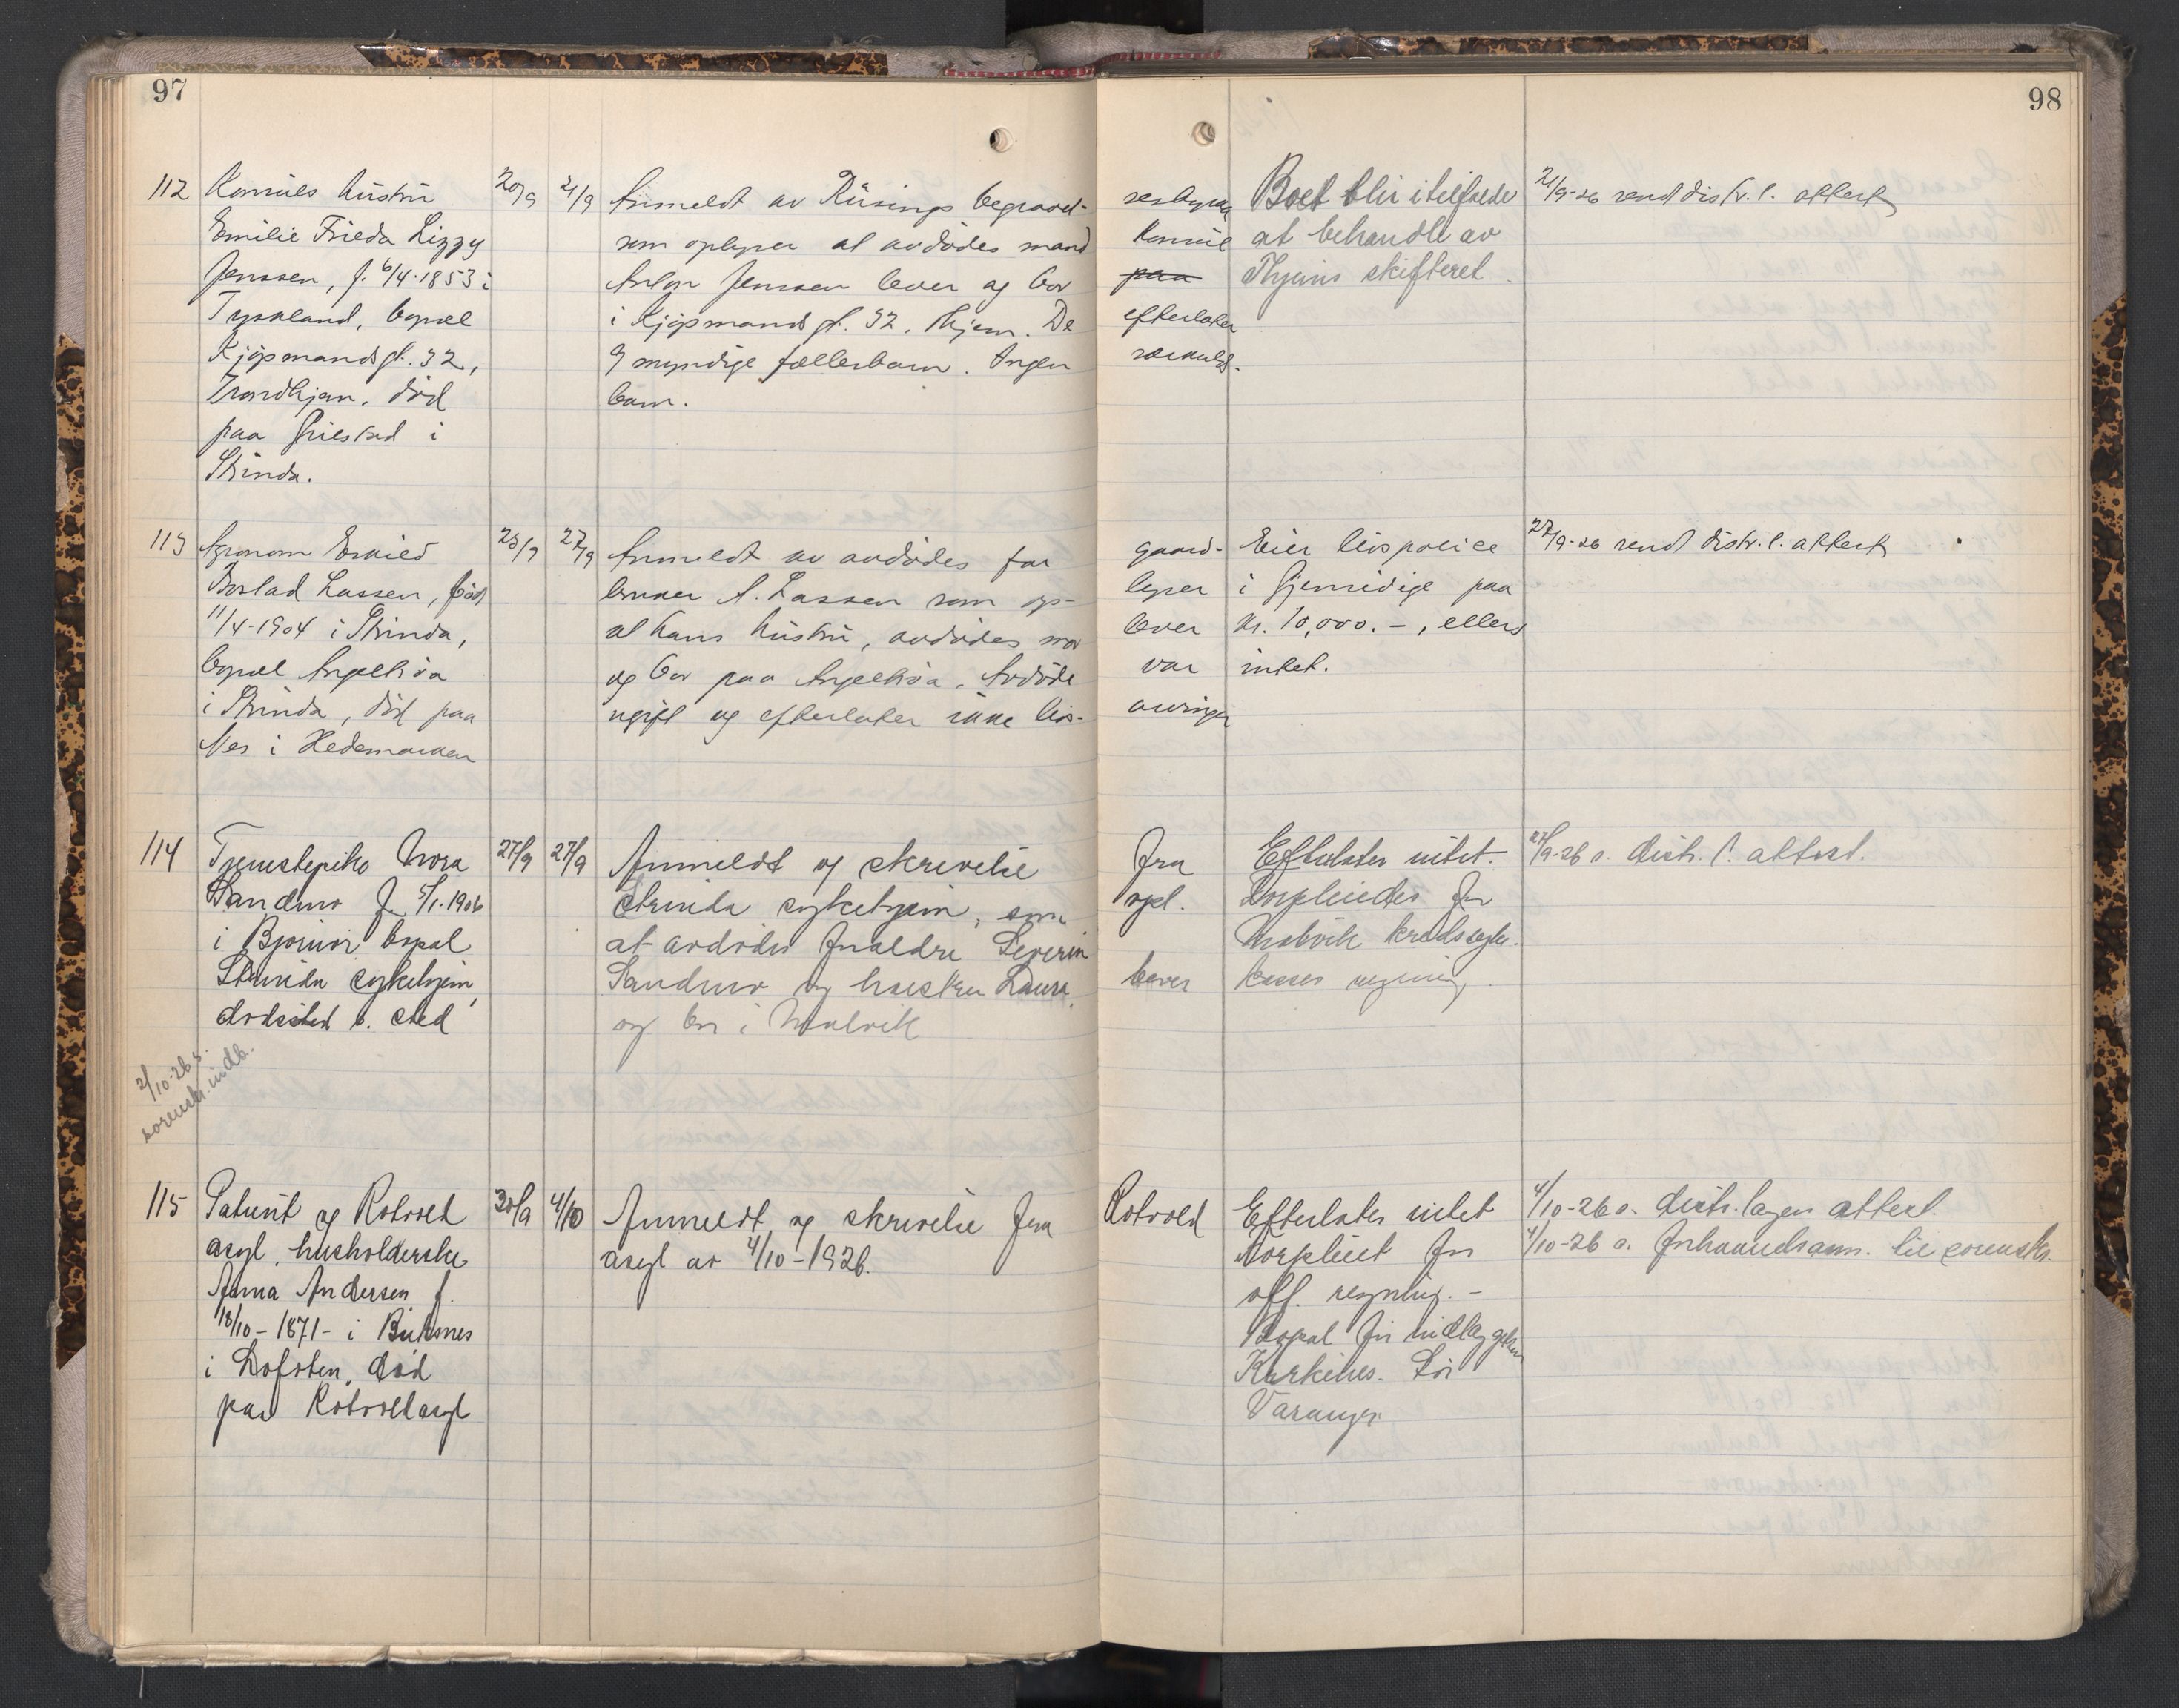 97
98
112 Konsuls hustru 20/9 21/9 Anmeldt av Rüsings begravel-
Emilie Frieda Lizzy som oplyser at avdødes mand
Jenssen, f. 6/4-1853 i Anton Jenssen lever og bor
Tyskland, bopæl i Kjøpmandsgt. 32, Thjem. De
Kjøpmandsgt. 32, 9 myndige fællesbarn. Ingen
Trondhjem, død barn.
paa i
Strinda.
sesbyraa Boet blir i tilfælde 21/9-26 sendt distr. l. attest
konsul at behandle av
paa Thjems skifteret
efterlater
særkuld-
113 Agronom Eskild 23/9 27/9 Anmeldt av avdødes far
Lassen, född bruker A. Lassen som op-
11/4-1904 i Strinda, at hans hustru, avdødes mor
bopæl Angeltrøa og bor paa Angeltrøa. Avdøde
i Strinda, död paa ugift og efterlater ikke livs-
Nes i Hedemarken
gaard- Eier livspolice 27/9-26 sendt distr. l. attest
lyser i Gjensidige paa
lever kr. 10,000.-, ellers
var intet.
arvinger
114 Tjenestepike Nora 27/9 27/9 Anmeldt og skrivelse
Sandmo f. 5/1-1906 Strinda sykehjem, som
i Bjørnør bopæl at avdødes forældre Severin
Strinda sykehjem, Sandmo og hustru Laura
dødssted s. sted og bor i Malvik
2/10-26 s.
sorensk. indb.
fra Efterlater intet. 27/9-26 s. distr. l. attest.
opl. Forpleiedes for
Malvik kredssyke-
lever kasses regning.
115 Patient og Rotvold 30/9 4/10 Anmeldt og skrivelse fra
asyl, husholderske asyl av 4/10-1926.
Anna Andersen f.
18/10-1871- i Buksnes
i Lofoten, død
paa Rotvoll asyl
Rotvold Efterlater intet 4/10-26 s. distr. lægen attest.
forpleiet for 4/10-26 s. til sorensk.
off. regning.-
Bopæl før indlæggelsen
Kirkenes. Sør
Varanger